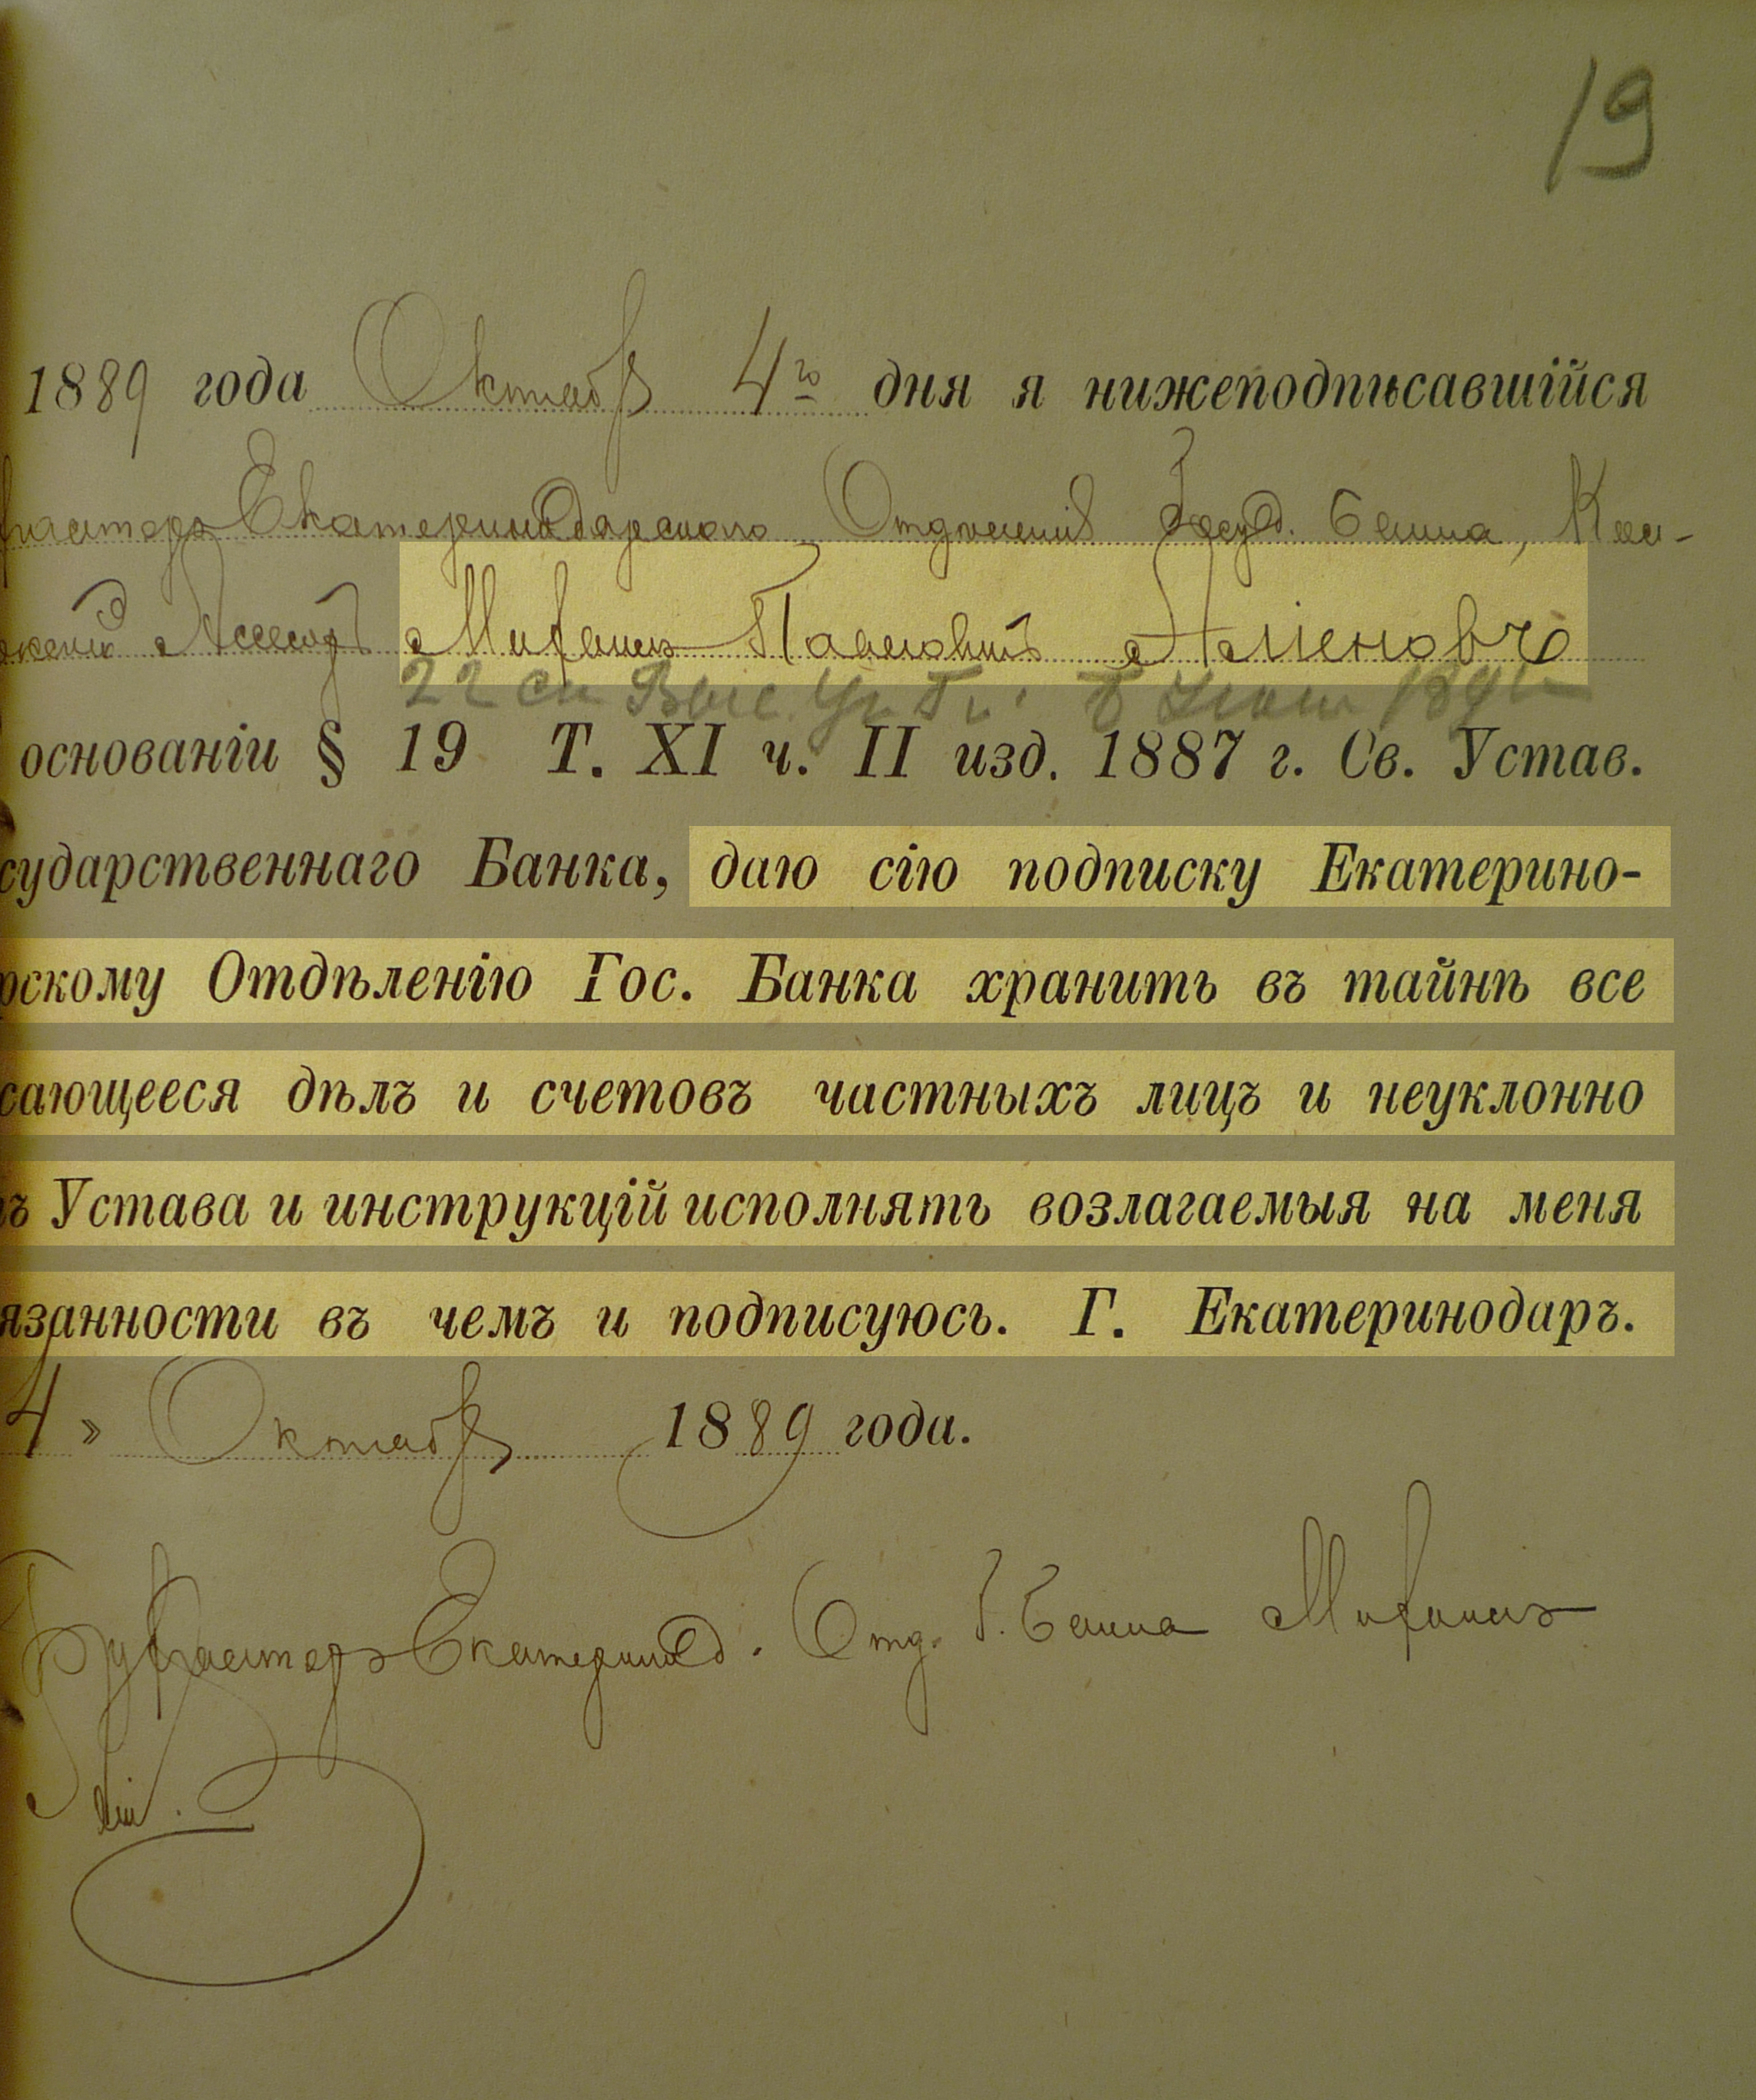 19
1889 года Октябр 4го дня я нижеподписавшійся
Екатеринодарскаго Отдѣленія Госуд. Банка, Кол-
Ассесоръ Михаилъ Павловичъ
22
основаніи § 19 Т. XI ч. II изд. 1887 г. Св. Устав.
сударственнаго Банка, даю сію подписку Екатерино-
рскому Отдѣленію Гос. Банка хранить въ тайнѣ все
сающееся дѣлъ и счетовъ частныхъ лицъ и неуклонно
ъ Устава и инструкцій исполнять возлагаемыя на меня
язанности въ чемъ и подписуюсь. Г. Екатеринодаръ.
4 » Октябр 1889 года.
Бухгалтеръ Екатеринод. Отд. Г. Банка Михаилъ